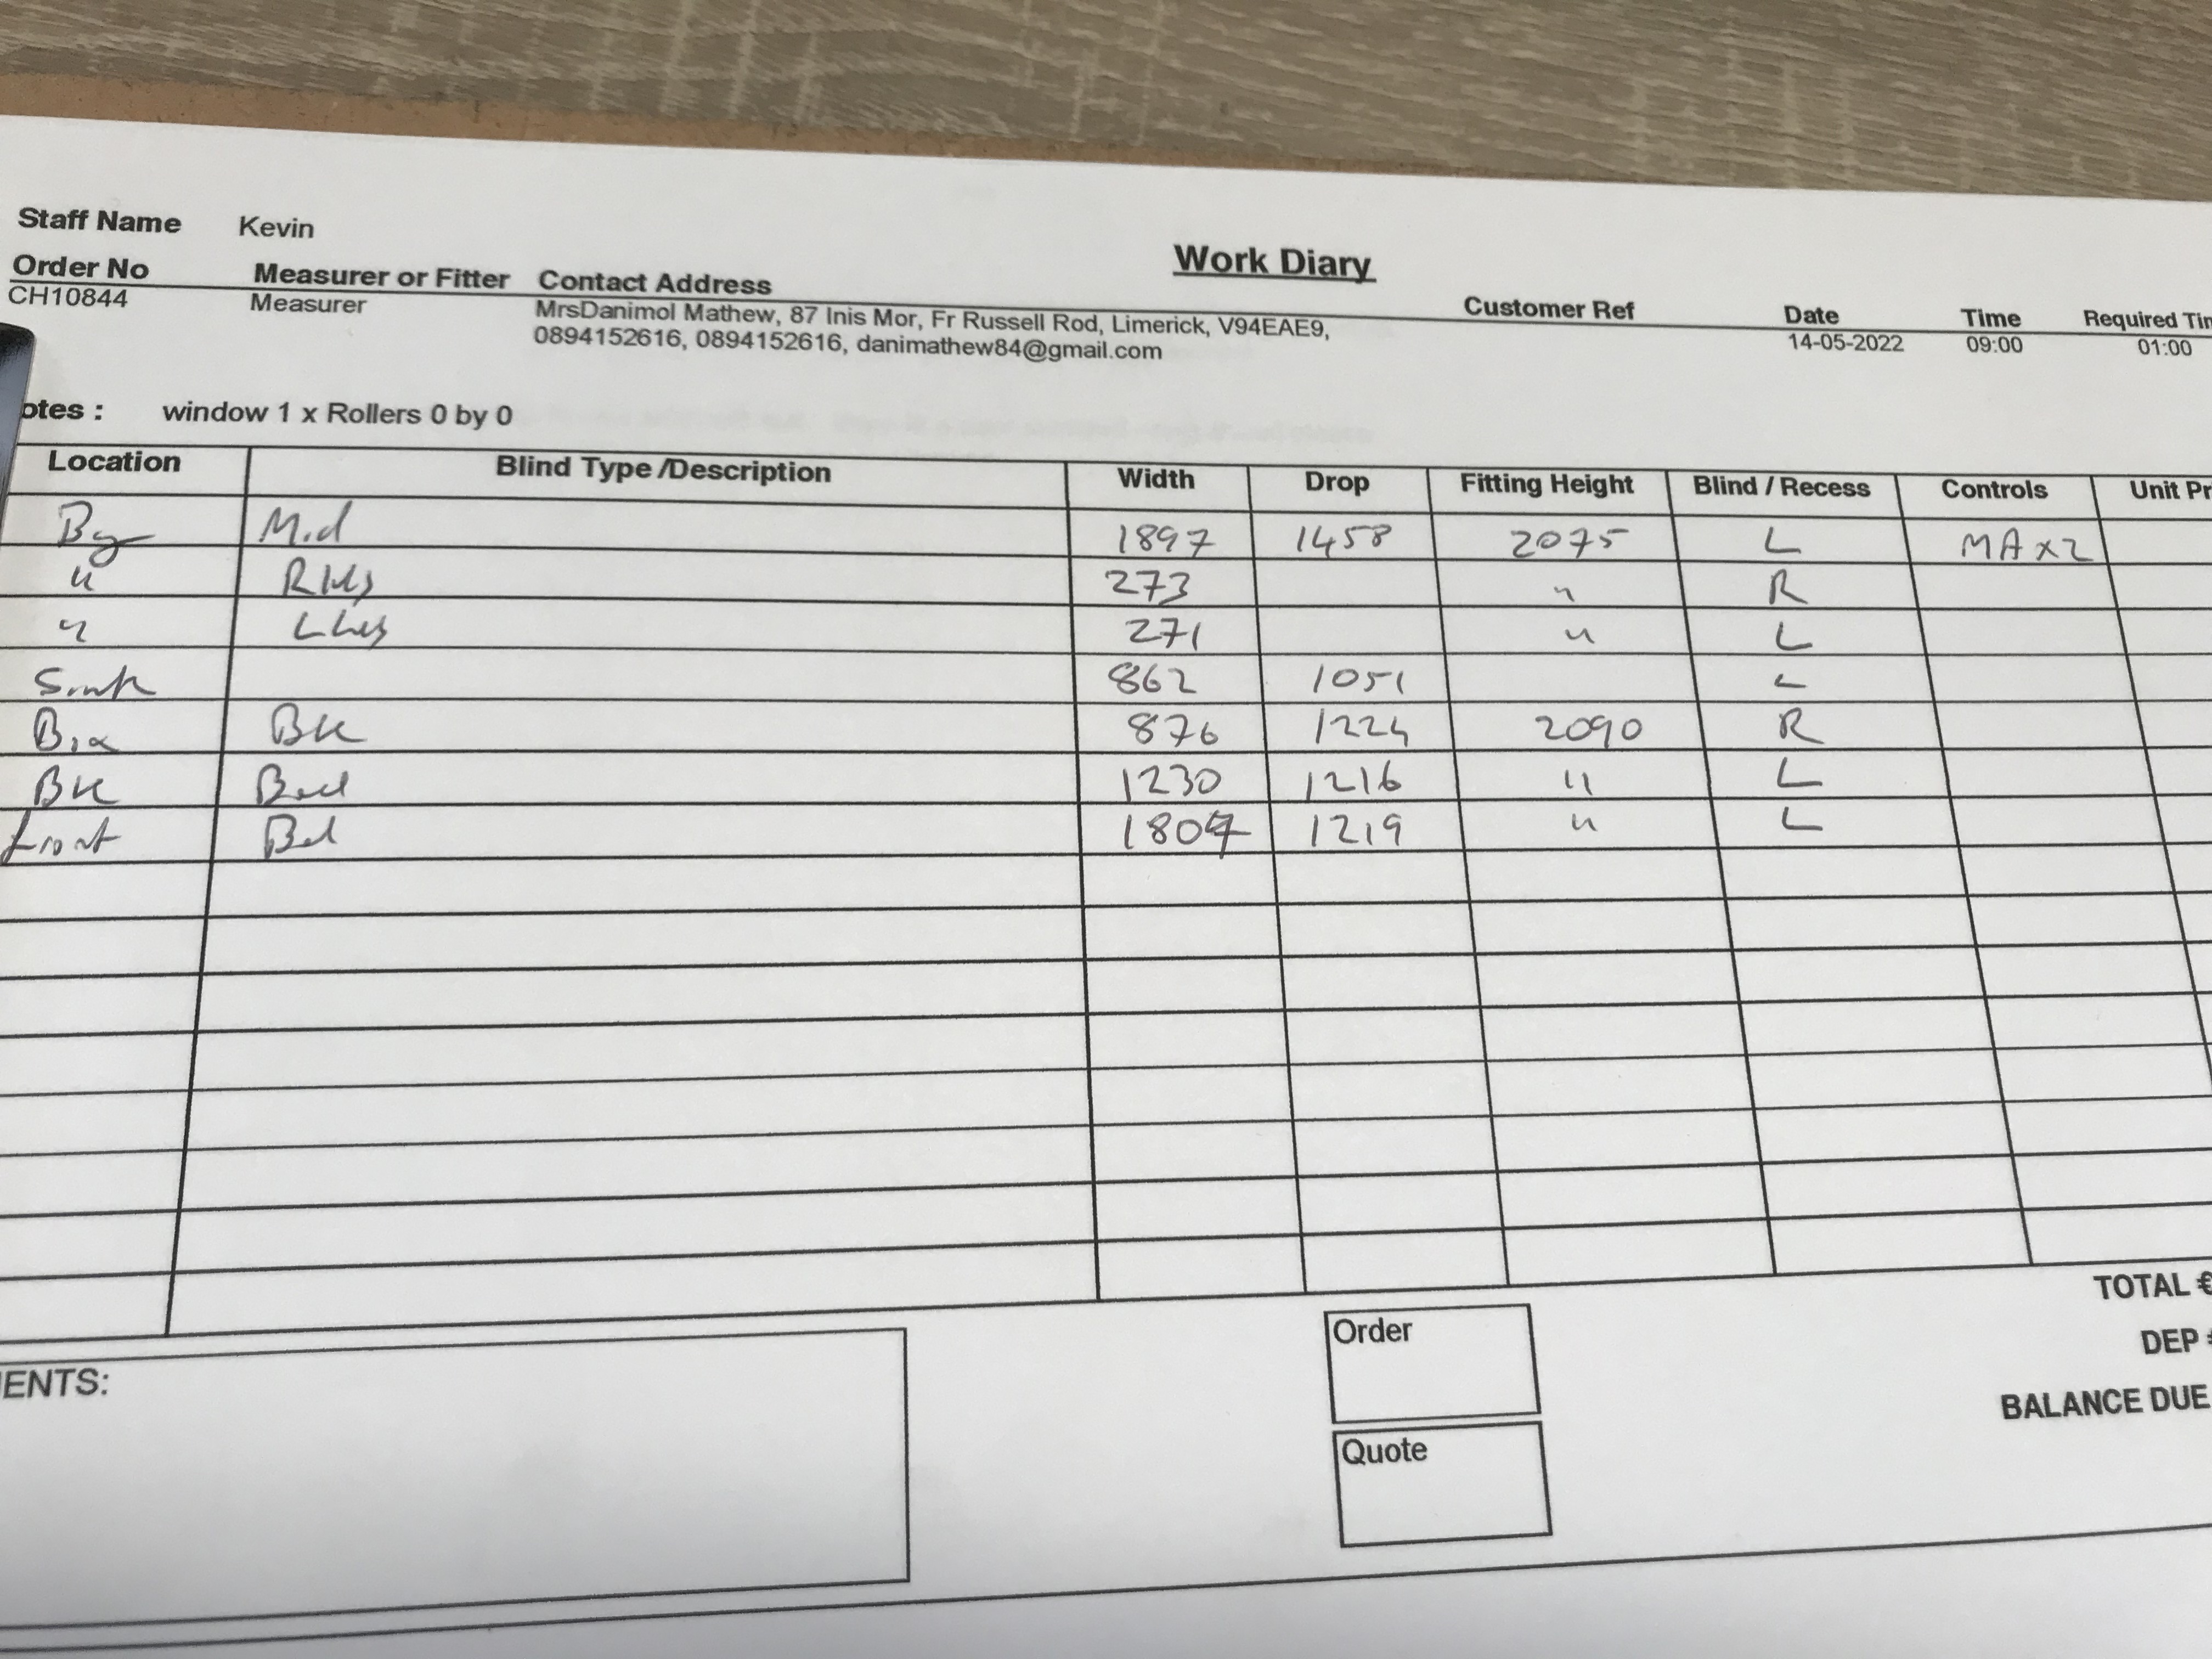 Staff Name Kevin
Work Diary
Order No Measurer or Fitter Contact Address Customer Ref Date Time Required Tim
CH10844 Measurer MrsDanimol Mathew, 87 Inis Mor, Fr Russell Rod, Limerick, V94EAE9, 14-05-2022 09:00 01:00
0894152616, 0894152616, danimathew84@gmail.com
otes : window 1 x Rollers 0 by 0
Location Blind Type /Description Width Drop Fitting Height Blind / Recess Controls Unit Pr
Mid 1897 1458 2075 L MAx2
" RHS 273 " R
" LHS 271 " L
Sink 862 1051 L
Box BK 876 1224 2090 R
BK Bed 1230 1216 " L
front Bed 1807 1219 " L
TOTAL €
Order
DEP
ENTS:
BALANCE DUE
Quote